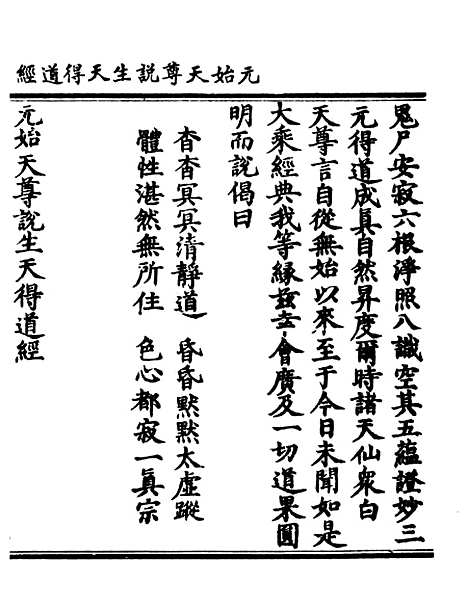 元始天尊説生天得道經
鬼尸安寂六根淨照八識空其五蘊證妙三
元得道成眞自然昇度爾時諸天仙衆白
天尊言自從無始以來至于今日未聞如是
大乘經典我等縁兹幸會廣及一切道果圓
明而說偈曰
杳杳冥冥清靜道 昏昏默默太虛蹤
體性湛然無所住 色心都寂一眞宗
元始天尊說生天得道經